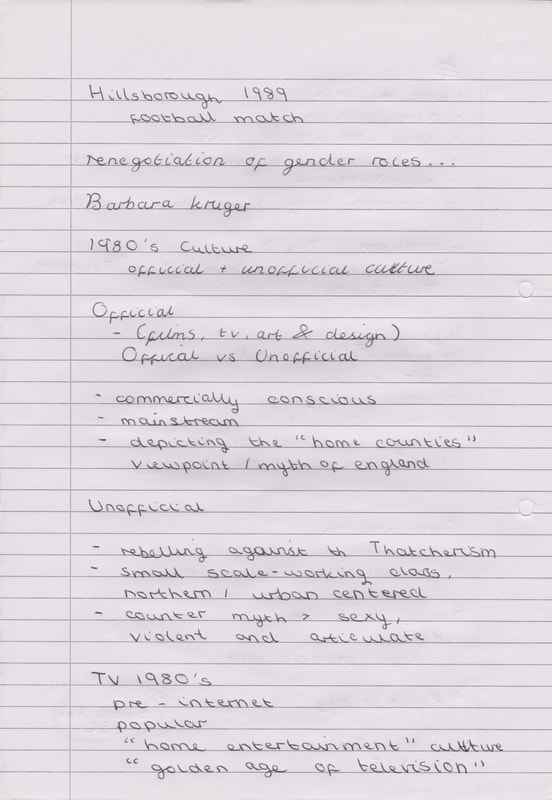 Hillsborough 1989
football match
renegotiation of gender roles...
Barbara Kruger
1980's Culture
official + unofficial culture
Official
- (films, tv, art & design)
Offical vs Unofficial
- commercially conscious
- mainstream
- depicting the "home counties"
viewpoint / myth of england
Unofficial
- rebelling against th Thatcherism
- small scale-working class,
northern / urban centered
- counter myth > sexy,
violent and articulate
TV 1980's
pre - internet
popular
"home entertainment" culture
"golden age of television"